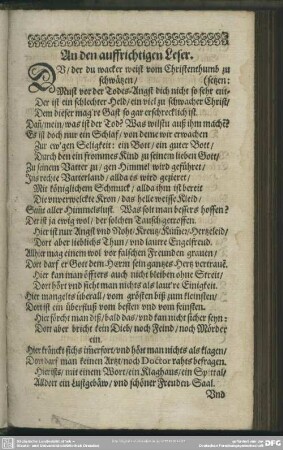 An den auffrichtigen Leser.
DV/ der du wacker weist vom Christenthumb zu
schwätzen/ (setzen:
Must vor der Todes-Angst dich nicht so sehr ent-
Der ist ein schlechter Held/ ein viel zu schwacher Christ/
Dem dieser mag're Gast so gar erschrecklich ist.
Dañ/ mein/ was ist der Tod? Was wilstu auß ihm machẽ?
Es ist doch nur ein Schlaf/ von deme wir erwachen
Zur ew'gen Seligkeit: ein Bott/ ein guter Bott/
Durch den ein frommes Kind zu seinem lieben Gott/
Zu seinem Vatter zu/ gen Himmel wird geführet/
Ins rechte Vatterland/ allda es wird gezieret
Mit königlichem Schmuck/ allda ihm ist bereit
Die unverwelckte Kron/ das helle weisse Kleid/
Sam̃t aller Himmelslust. Was solt man bessers hoffen?
Der ist ja ewig wol/ der solchen Tausch getroffen.
Hier ist nur Angst vnd Noht/ Kreutz/ Kum̃er/ Hertzeleid/
Dort aber lieblichs Thun/ vnd lautre Engelfreud.
Allhie mag einem wol vor falschen Freunden grauen/
Dort darf er Gott dem Herrn sein gantzes Hertz vertrauẽ.
Hier kan man öffters auch nicht bleiben ohne Streit/
Dort hört vnd sieht man nichts als laut're Einigkeit.
Hier mangelts überall/ vom grösten biß zum kleinsten/
Dort ist ein überfluß vom besten vnd vom feinsten.
Hier förcht man diß/ bald das/ vnd kan nicht sicher seyn:
Dort aber bricht kein Dieb/ noch Feind/ noch Mörder
ein.
Hier kränckt sichs im̃erfort/ vnd hört man nichts als klagen/
Dort darf man keinen Artzt/ noch Doctor rahts befragen.
Hier ists/ mit einem Wort/ ein Klaghaus/ ein Spittal/
Alldort ein Lustgebäw/ vnd schöner Freuden Saal.
Vnd